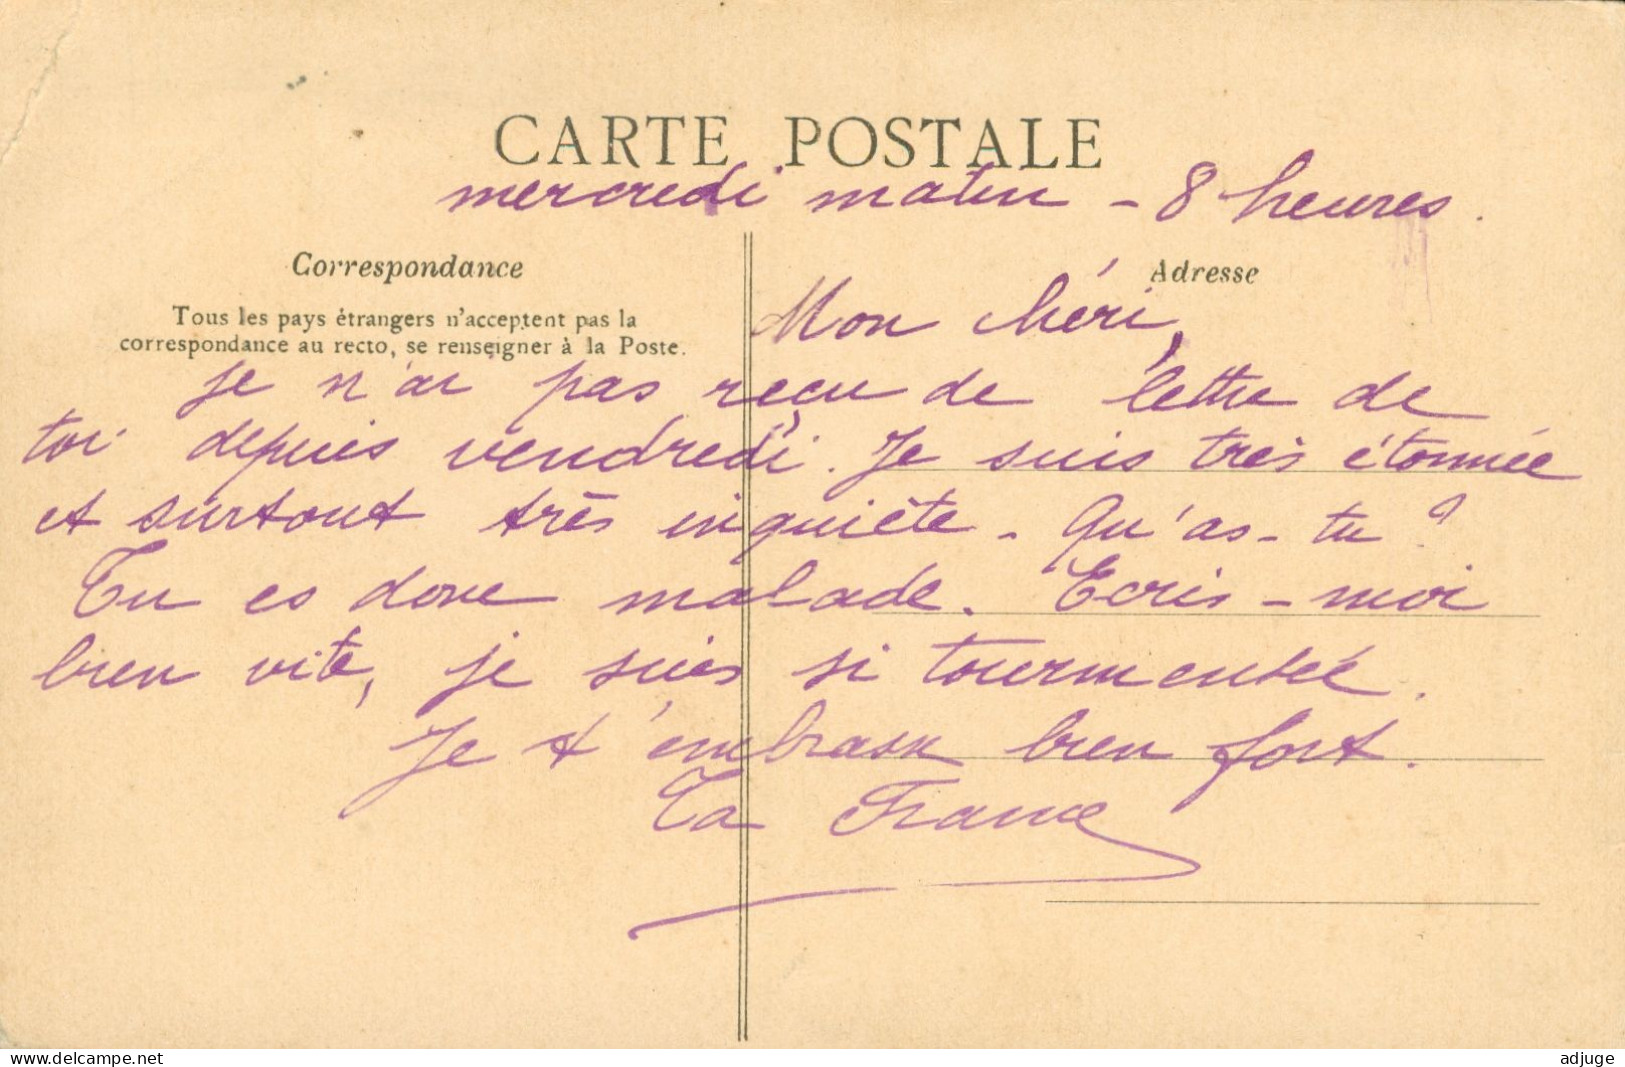 CARTE POSTALE
mercredi matin - 8 heures.
Correspondance
Adresse
Tous les pays étrangers n'acceptent pas la
correspondance au recto, se renseigner à la Poste.
Mon chéri,
je n'ai pas reçu de lettre de
toi depuis vendredi. Je suis très étonnée
et surtout très inquiète - Qu'as-tu ?
Tu es donc malade. Ecris-moi
bien vite, je suis si tourmentée.
Je t'embrasse bien fort.
Ta France
www.delcampe.net
adjuge